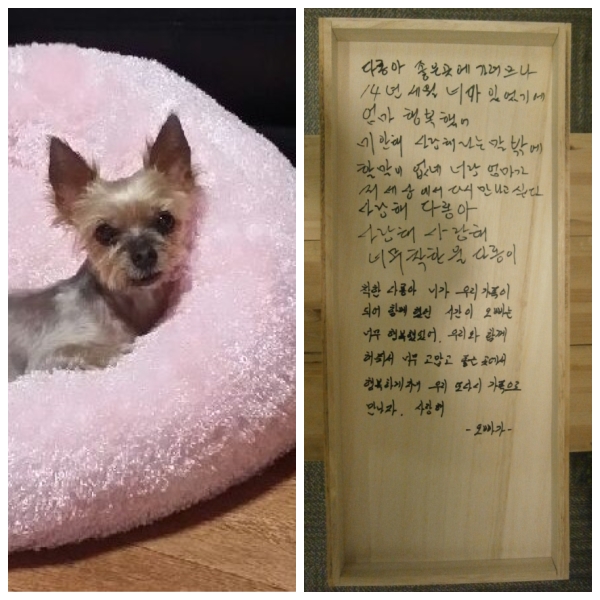 다롱아 좋은곳에
14년 세월 너가 있었기에
엄마 행복했어
미안해 사랑해라는 말 밖에
할말이 없네 너랑 엄마가
저 세상에서 다시 만나고 싶다
사랑해 다롱아
사랑해 사랑해
착한 다롱이
착한 다롱아 니가 우리 가족이
되어 함께 했던 시간이 오빠는
너무 행복했었어. 우리와 함께
해줘서 너무 고맙고 좋은 곳에서
행복하게 우리 또다시 가족으로
만나자. 사랑해
-오빠가-